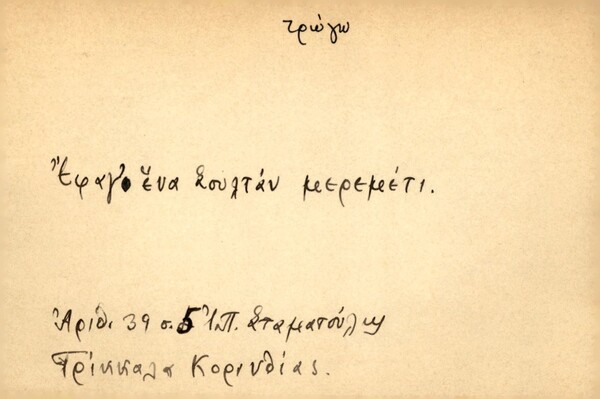 τρώγω
Ἔφαγε ἕνα Σουλτάν μερεμέτι.
Ἀριθ. 39 σ. 5 Ἰ.Π. Σταματούλης
Τρίκκαλα Κορινθίας.